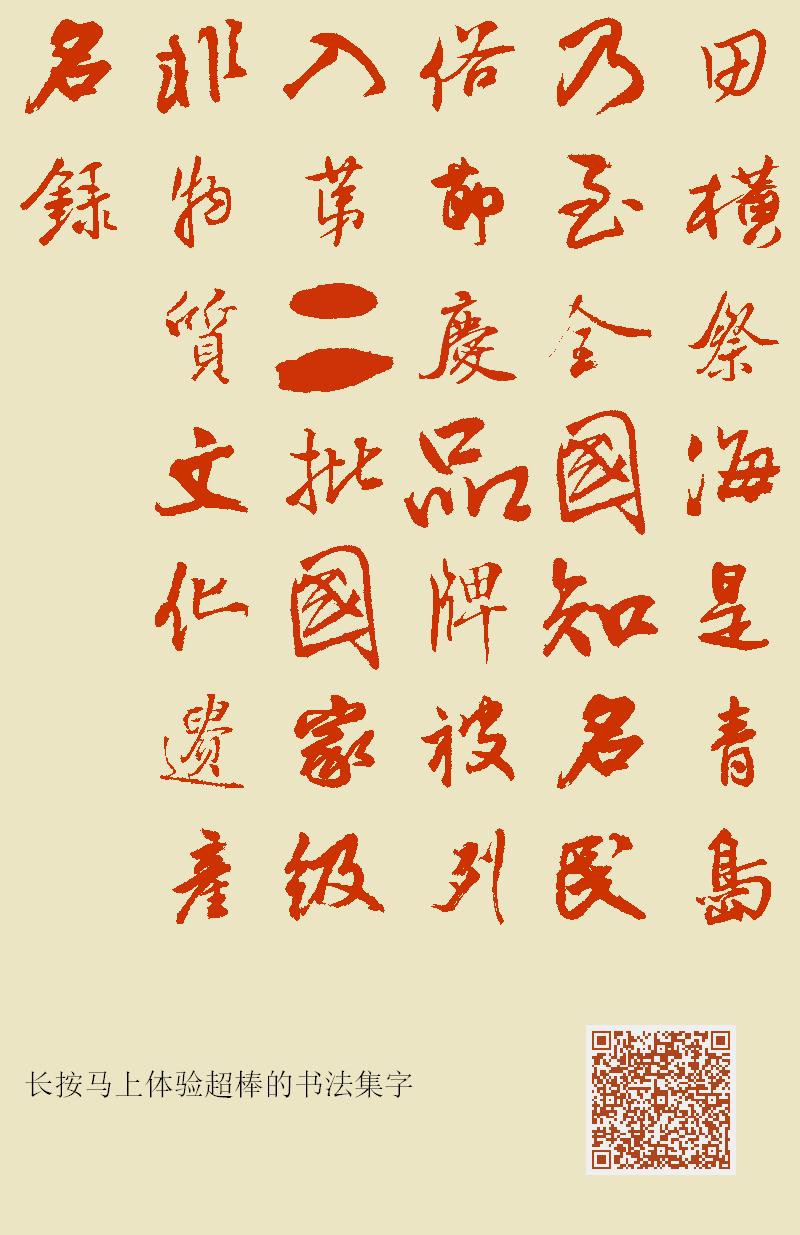 田橫祭海是青島
乃至全國知名民
俗節慶品牌被列
入第二批國家级
非物質文化遺產
名録
长按马上体验超棒的书法集字